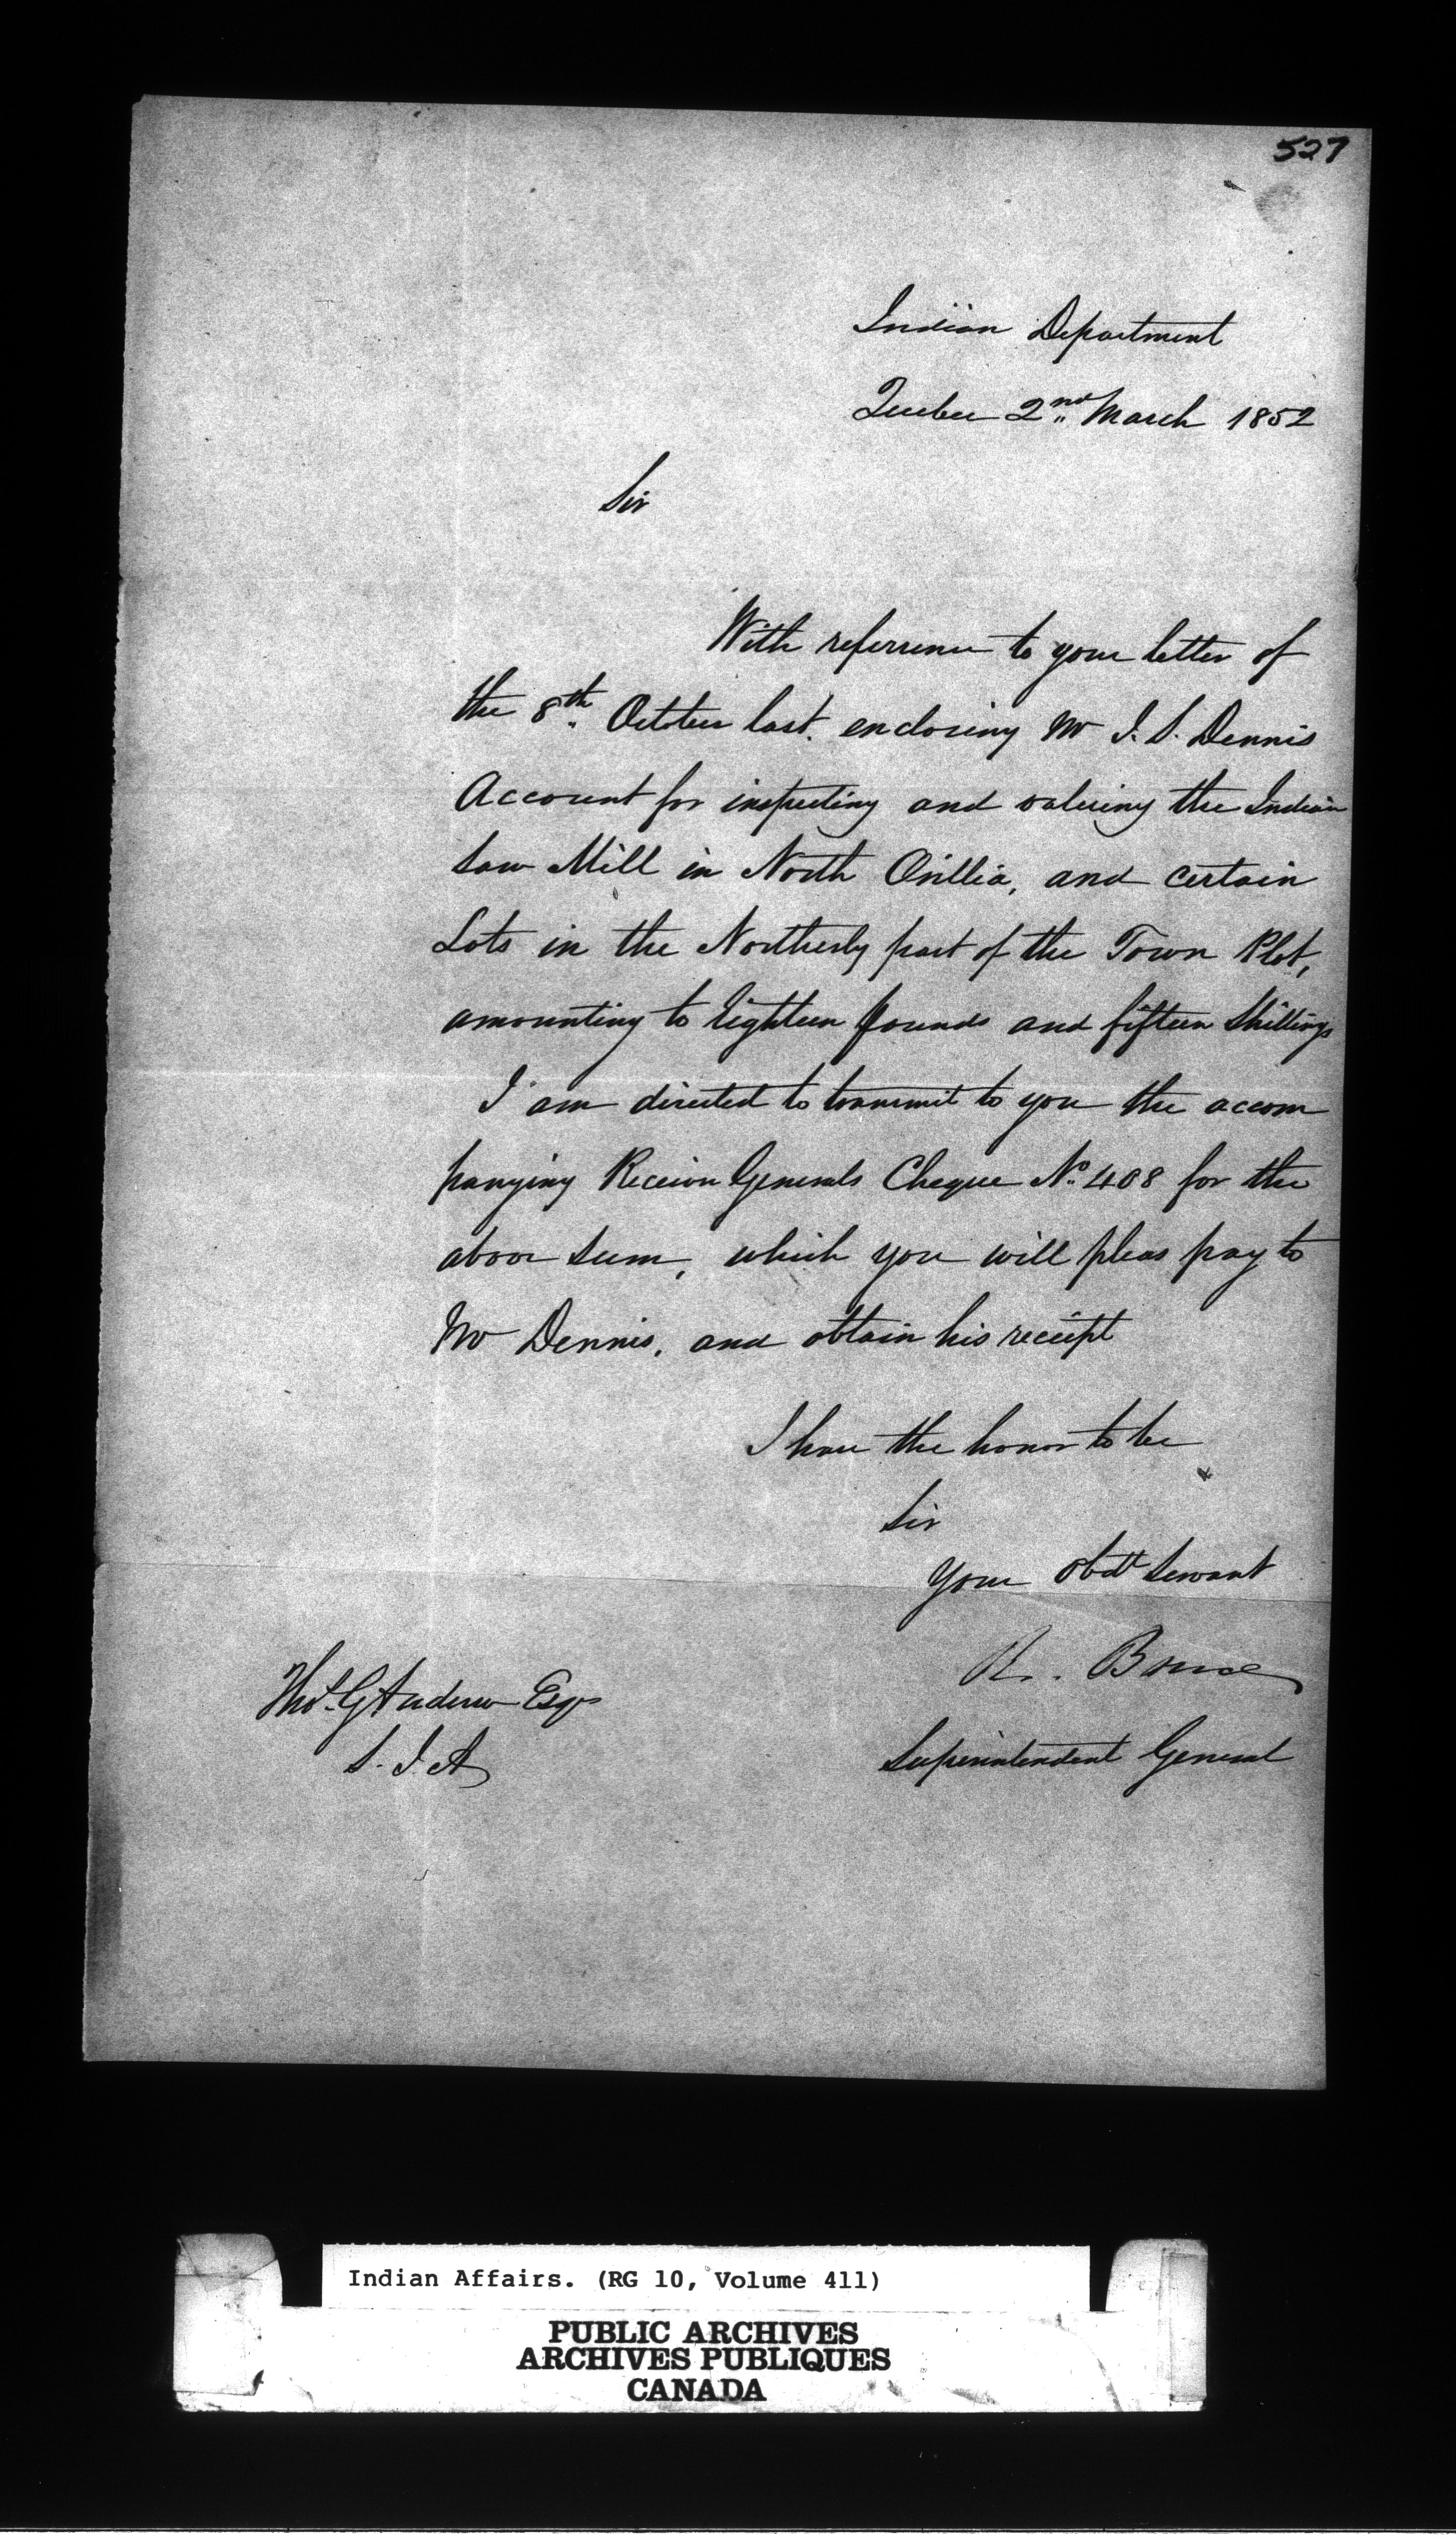 527
Indian Department
Quebec 2nd March 1852
Sir
With referrence to your letter of
the 8th October last. enclosing Mr J. S. Dennis
Account for inspecting and valuing the Indian
Saw Mill in North Orillia, and certain
Lots in the Northerly part of the Town Plot,
amounting to Eighteen pounds and fifteen Shillings
I am directed to transmit to you the accom
panying Receiver Generals Cheque No. 408 for the
above sum, which you will pleas pay to
Mr Dennis, and obtain his receipt
I have the honor to be
Sir
Your Obdt Servant
R. Bruce
Superintendent General
Thos. G Anderson Esqr
S. I. A
Indian Affairs. (RG 10, Volume 411)
PUBLIC ARCHIVES
ARCHIVES PUBLIQUES
CANADA